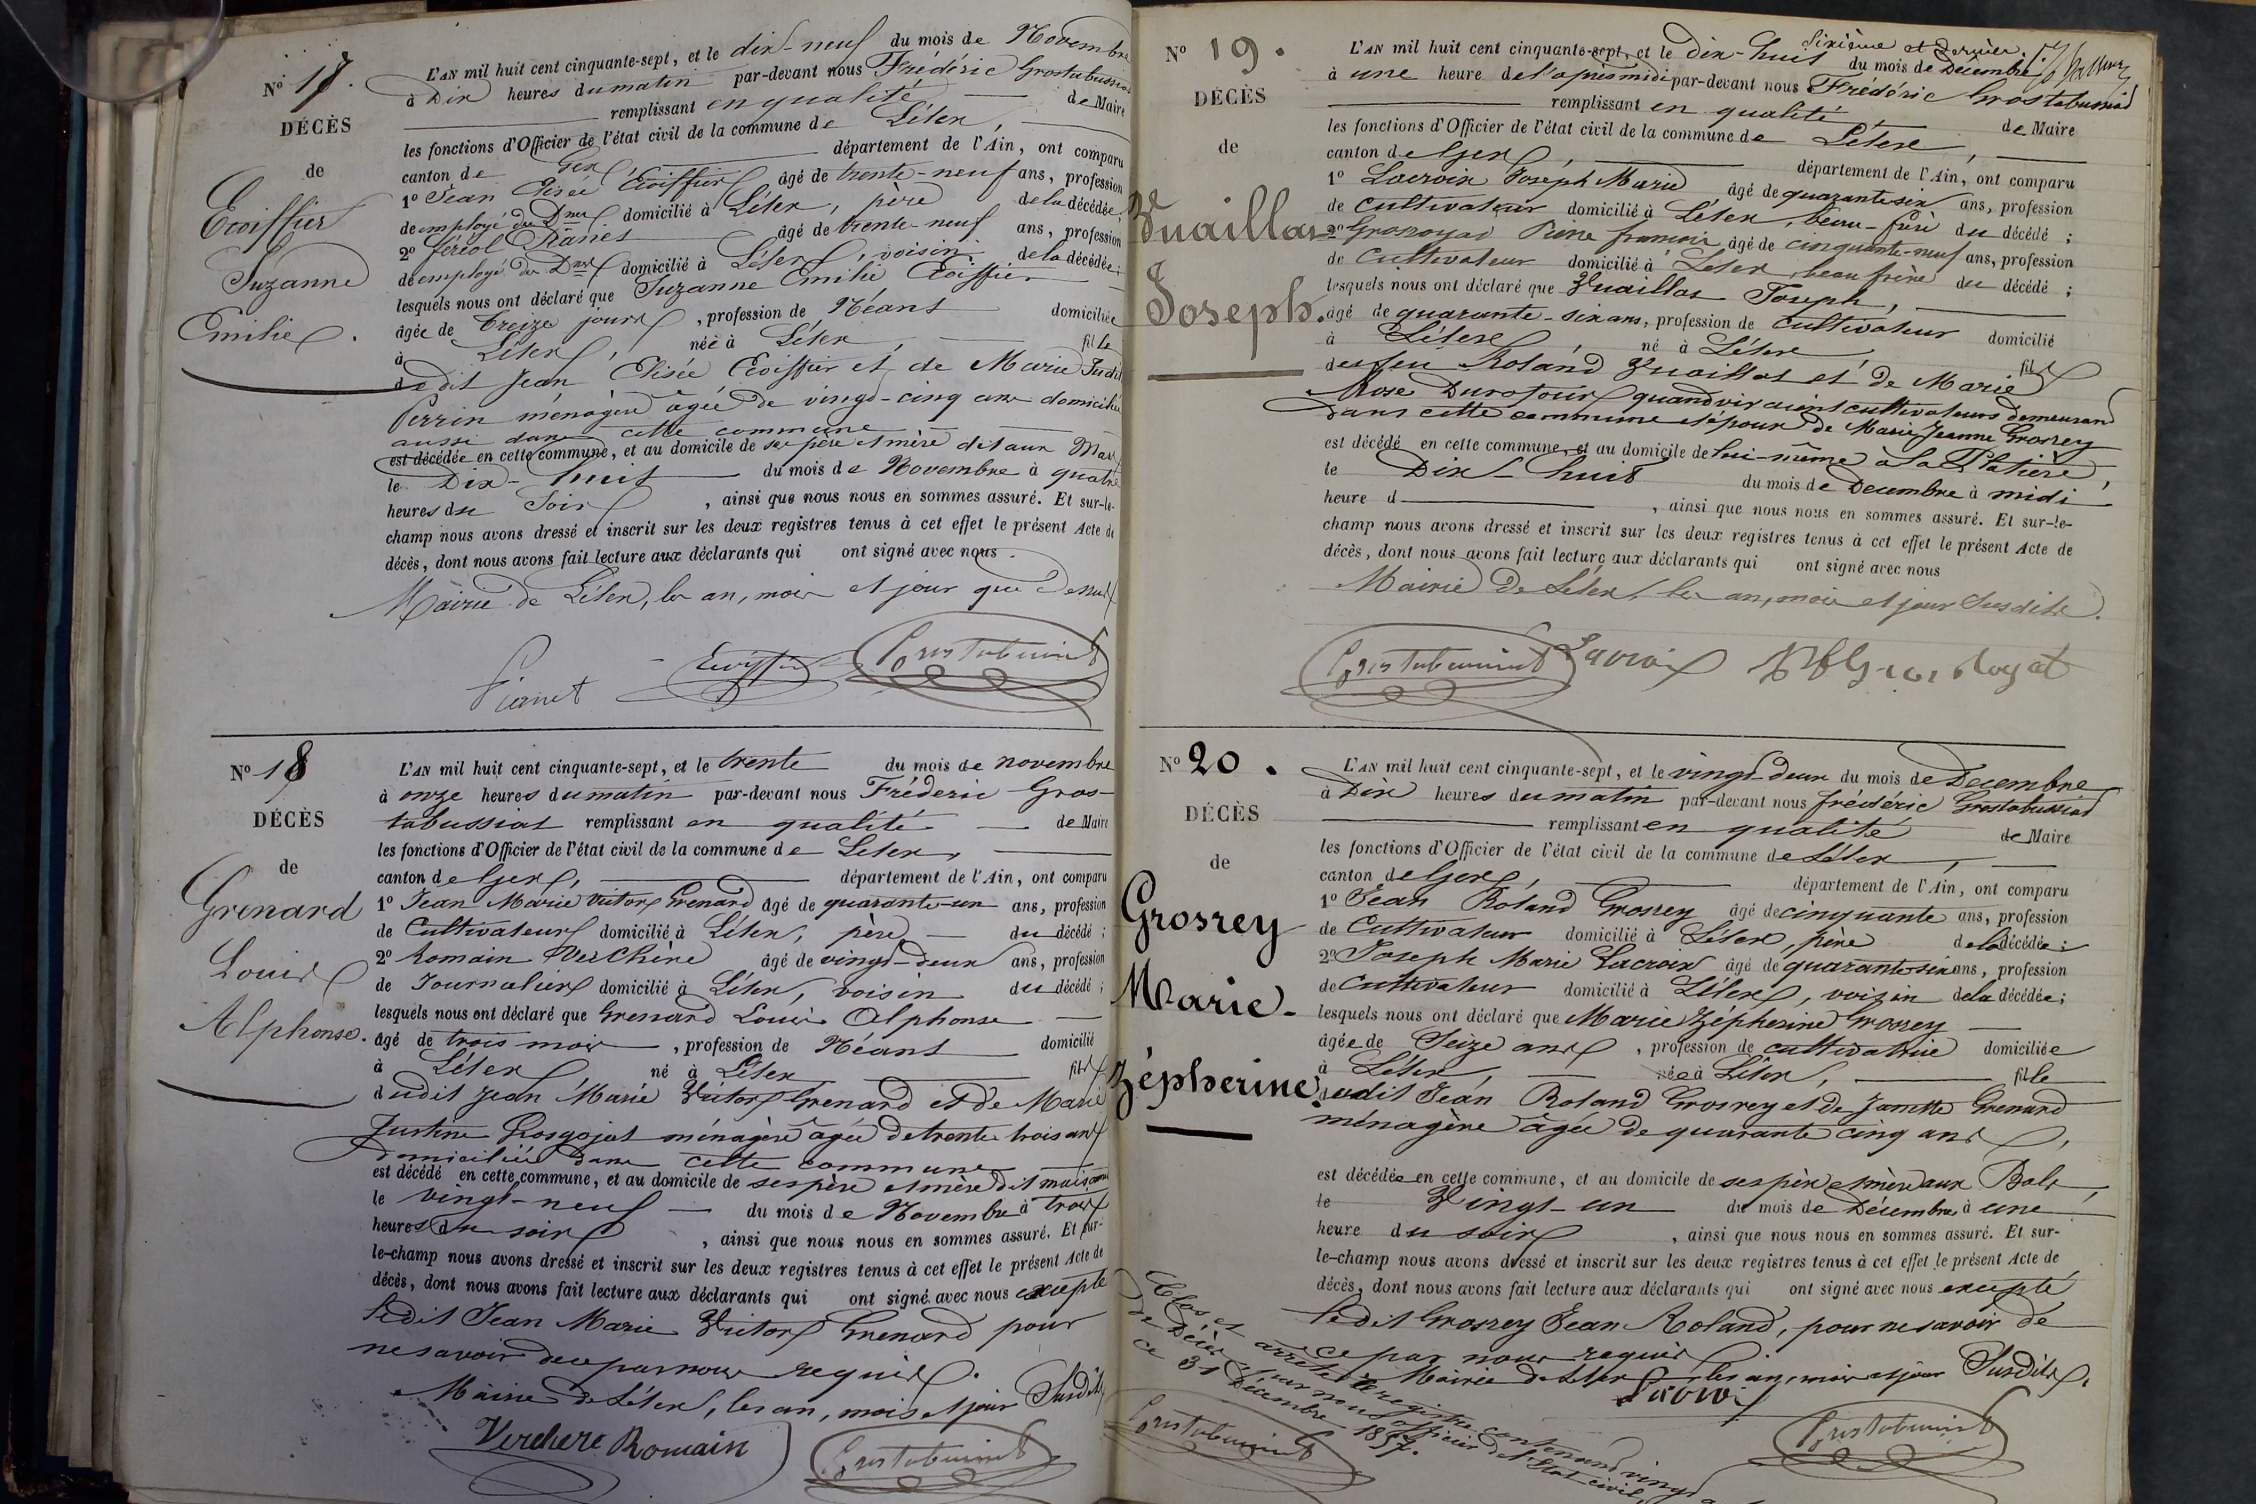 N° 17.
DÉCÈS
de
Ecoiffier
Suzanne
Emilie.
L'AN mil huit cent cinquante-sept, et le dix-neuf du mois de Novembre
à Dix heures du matin par-devant nous Frédéric Grostabussiat
remplissant en qualité de Maire
les fonctions d'Officier de l'état civil de la commune de Lélex,
canton de Gex, département de l'Ain, ont comparu
1° Jean Elisée Ecoiffier âgé de trente-neuf ans, profession
de employé des Dnes domicilié à Lélex, père de la décédée,
2° Féréol Pianet âgé de trente-neuf ans, profession
de employé des Dnes domicilié à Lélex, voisin de la décédée;
lesquels nous ont déclaré que Suzanne Emilie Ecoiffier
âgée de treize jours, profession de Néant domiciliée
à Lélex, née à Lélex, fille
dudit Jean Elisée Ecoiffier et de Marie Judit
Perrin ménagère âgée de vingt-cinq ans domiciliée
aussi dans cette commune
est décédée en cette commune, et au domicile de ses père et mère dit aux
le Dix-huit du mois de Novembre à quatre
heures du Soir, ainsi que nous nous en sommes assuré. Et sur-le-
champ nous avons dressé et inscrit sur les deux registres tenus à cet effet le présent Acte de
décès, dont nous avons fait lecture aux déclarants qui ont signé avec nous.
Mairie de Lélex, les an, mois et jour que dessus
Pianet Ecoiffier Grostabussiat
N° 18
DÉCÈS
de
Grenard
Louis
Alphonse.
L'AN mil huit cent cinquante-sept, et le trente du mois de novembre
à onze heures du matin par-devant nous Fréderic Gros-
tabussiat remplissant en qualité de Maire
les fonctions d'Officier de l'état civil de la commune de Lelex,
canton de Gex, département de l'Ain, ont comparu
1° Jean Marie Victor Grenard âgé de quarante-un ans, profession
de Cultivateur domicilié à Lélex, père du décédé;
2° Romain Verchère âgé de vingt-deux ans, profession
de Journalier domicilié à Lélex, voisin du décédé;
lesquels nous ont déclaré que Grenard Louis Alphonse
âgé de trois mois, profession de Néant domicilié
à Lélex né à Lélex fils
dudit Jean Marie Victor Grenard et de Marie
Justine Grosgojat ménagère âgée de trente trois ans
domiciliée dans cette commune
est décédé en cette commune, et au domicile de ses père et mère dit
le vingt-neuf du mois de Novembre à trois
heures du soir, ainsi que nous nous en sommes assuré. Et sur-
le-champ nous avons dressé et inscrit sur les deux registres tenus à cet effet le présent Acte de
décès, dont nous avons fait lecture aux déclarants qui ont signé avec nous excepté
ledit Jean Marie Victor Grenard pour
ne savoir de ce par nous requis.
Mairie de Lélex, les an, mois et jour Susdits
Verchere Romain Grostabussiat
Sixième et Dernier.
N° 19.
DÉCÈS
de
Vuaillat
Joseph.
L'AN mil huit cent cinquante-sept, et le Dix-huit du mois de Décembre
à une heure de l'après midi par-devant nous Frédéric Grostabussiat
remplissant en qualité de Maire
les fonctions d'Officier de l'état civil de la commune de Lélex,
canton de Gex, département de l'Ain, ont comparu
1° Lacroix Joseph Marie âgé de quarante six ans, profession
de cultivateur domicilié à Lélex, beau-frère du décédé;
2° Grosroyat Pierre françois âgé de cinquante-neuf ans, profession
de Cultivateur domicilié à Lelex, beau frère du décédé;
lesquels nous ont déclaré que Vuaillat Joseph,
âgé de quarante-six ans, profession de Cultivateur domicilié
à Lélex, né à Lélex fils
de feu Roland Vuaillat et de Marie
Rose Durafour quand vivaient cultivateurs demeurant
dans cette commune et époux de Marie Jeanne Grosrey
est décédé en cette commune, et au domicile de lui-même à la Platière,
le Dix-huit du mois de Decembre à midi
heure d, ainsi que nous nous en sommes assuré. Et sur-le-
champ nous avons dressé et inscrit sur les deux registres tenus à cet effet le présent Acte de
décès, dont nous avons fait lecture aux déclarants qui ont signé avec nous
Mairie de Lélex, les an, mois et jour Susdits.
Grostabussiat Lacroix Gros Royat
N° 20.
DÉCÈS
de
Grosrey
Marie-
Zépherine.
L'AN mil huit cent cinquante-sept, et le vingt-deux du mois de Decembre
à Dix heures du matin par-devant nous frédéric Grostabussiat
remplissant en qualité de Maire
les fonctions d'Officier de l'état civil de la commune de Lélex,
canton de Gex, département de l'Ain, ont comparu
1° Jean Roland Grosrey âgé de cinquante ans, profession
de Cultivateur domicilié à Lélex, père de la décédée;
2° Joseph Marie Lacroix âgé de quarante-six ans, profession
de Cultivateur domicilié à Lélex, voisin de la décédée;
lesquels nous ont déclaré que Marie Zépherine Grosrey
âgée de Seize ans, profession de cultivatrice domiciliée
à Lélex, née à Lélex, fille
dudit Jean Roland Grosrey et de Janette Grenard
ménagère âgée de quarante cinq ans,
est décédée en cette commune, et au domicile de ses père et mère aux Bals,
le Vingt-un du mois de Décembre à une
heure du soir, ainsi que nous nous en sommes assuré. Et sur-
le-champ nous avons dressé et inscrit sur les deux registres tenus à cet effet le présent Acte de
décès, dont nous avons fait lecture aux déclarants qui ont signé avec nous excepté
ledit Grosrey Jean Roland, pour ne savoir de
ce par nous requis
Mairie de Lélex les an, mois et jour Susdits.
Lacroix
Grostabussiat
Clos et arrêté le registre contenant vingt
de Décès par nous officier de l'Etat civil,
ce 31 Décembre 1857.
Grostabussiat